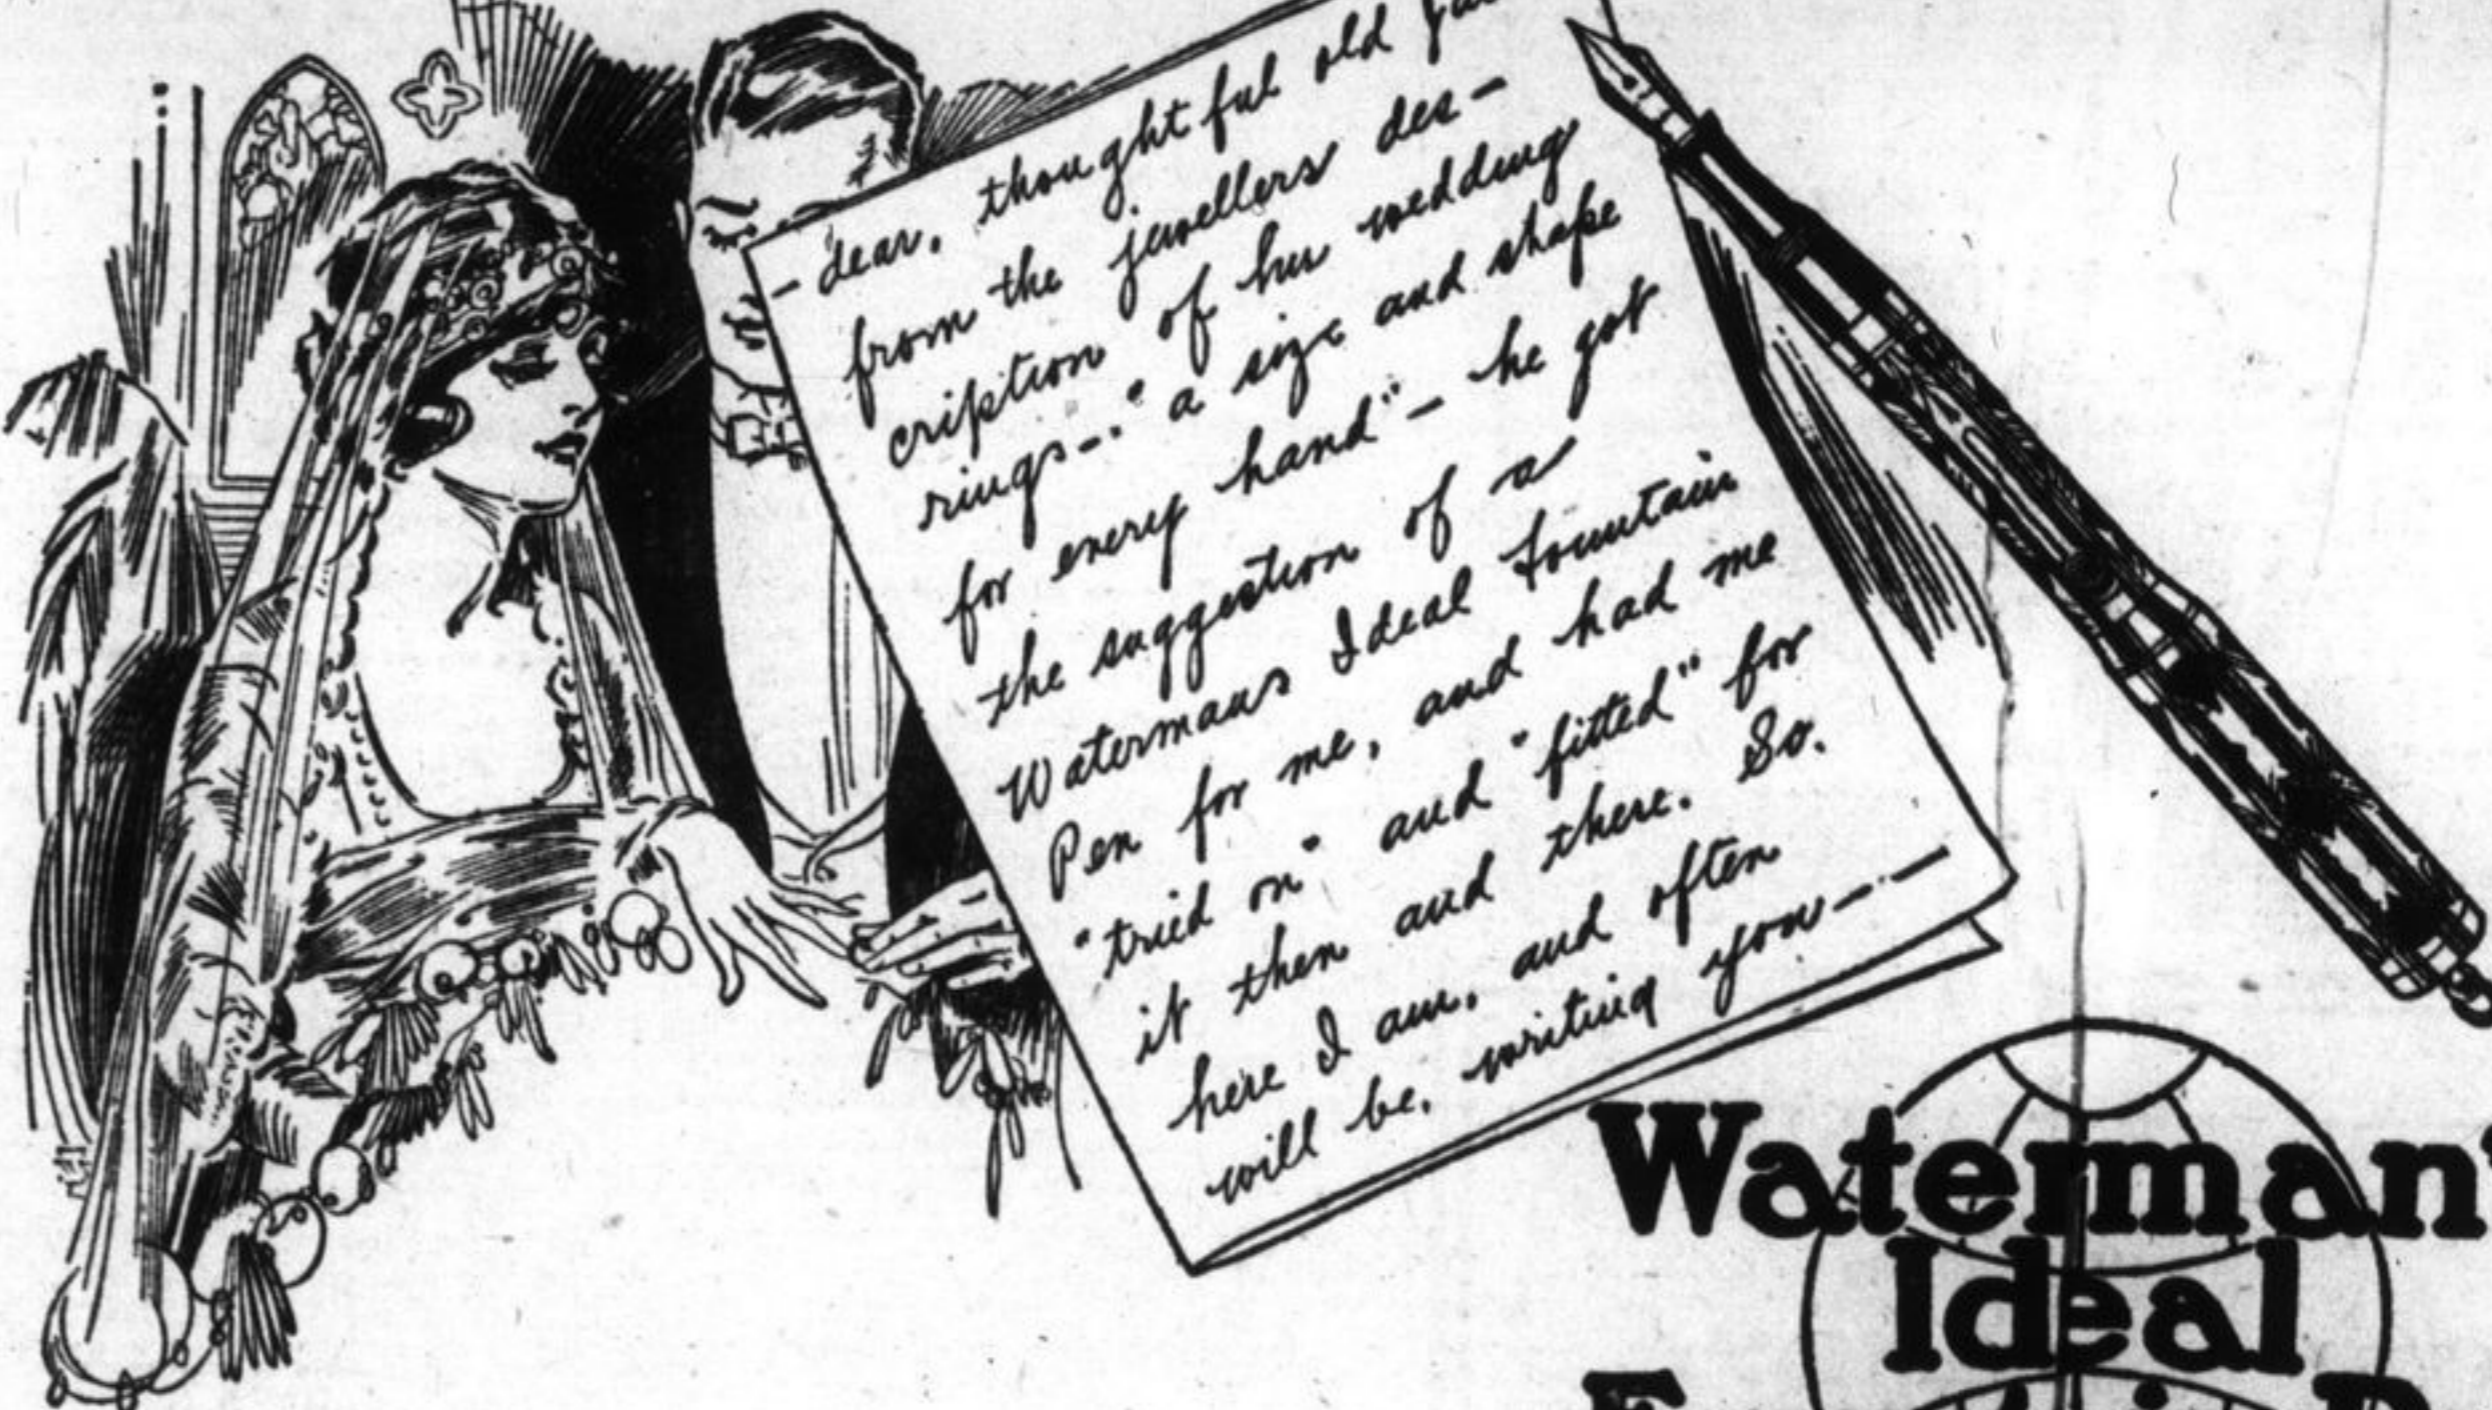 — dear, thoughtful old
from the jewellers des—
cription of her wedding
rings—"a size and shape
for every hand"— he got
the suggestion of a
Watermans Ideal Fountain
Pen for me, and had me
"tried on" and "fitted" for
it then and there. So,
here I am, and often
will be, writing you—.—
Waterman'
Ideal